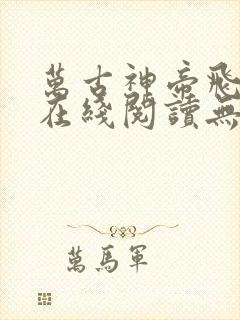 萬古神帝飛
在綫閱讀無
萬馬軍